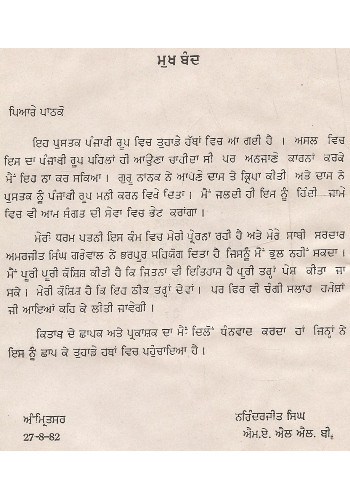 ਮੁਖ ਬੰਦ
ਪਿਆਰੇ ਪਾਠਕੋ
ਇਹ ਪੁਸਤਕ ਪੰਜਾਬੀ ਰੂਪ ਵਿਚ ਤੁਹਾਡੇ ਹੱਥਾਂ ਵਿਚ ਆ ਗਈ ਹੈ । ਅਸਲ ਵਿਚ
ਇਸ ਦਾ ਪੰਜਾਬੀ ਰੂਪ ਪਹਿਲਾਂ ਹੀ ਆਉਣਾ ਚਾਹੀਦਾ ਸੀ ਪਰ ਅਨਜਾਣੇ ਕਾਰਨਾਂ ਕਰਕੇ
ਮੈਂ ਇਹ ਨਾ ਕਰ ਸਕਿਆ । ਗੁਰੂ ਨਾਨਕ ਨੇ ਆਪਣੇ ਦਾਸ ਤੇ ਕ੍ਰਿਪਾ ਕੀਤੀ ਅਤੇ ਦਾਸ ਨੇ
ਪੁਸਤਕ ਨੂੰ ਪੰਜਾਬੀ ਰੂਪ ਮਨੀ ਕਰਨ ਵਿਖੇ ਦਿਤਾ । ਮੈਂ ਜਲਦੀ ਹੀ ਇਸ ਨੂੰ ਹਿੰਦੀ ਜਾਮੇ
ਵਿਚ ਵੀ ਆਮ ਸੰਗਤ ਦੀ ਸੇਵਾ ਵਿਚ ਭੇਟ ਕਰਾਂਗਾ ।
ਮੇਰੀ ਧਰਮ ਪਤਨੀ ਇਸ ਕੰਮ ਵਿਚ ਮੇਰੀ ਪ੍ਰੇਰਨਾ ਰਹੀ ਹੈ ਅਤੇ ਮੇਰੇ ਸਾਥੀ ਸਰਦਾਰ
ਅਮਰਜੀਤ ਸਿੰਘ ਗਰੇਵਾਲ ਨੇ ਭਰਪੂਰ ਸਹਿਯੋਗ ਦਿਤਾ ਹੈ ਜਿਸਨੂੰ ਮੈਂ ਭੁਲ ਨਹੀਂ ਸਕਦਾ ।
ਮੈਂ ਪੂਰੀ ਪੂਰੀ ਕੋਸ਼ਿਸ਼ ਕੀਤੀ ਹੈ ਕਿ ਜਿਤਨਾ ਵੀ ਇਤਿਹਾਸ ਹੈ ਪੂਰੀ ਤਰ੍ਹਾਂ ਪੇਸ਼ ਕੀਤਾ ਜਾ
ਸਕੇ । ਮੇਰੀ ਕੋਸ਼ਿਸ਼ ਹੈ ਕਿ ਇਹ ਠੀਕ ਤਰ੍ਹਾਂ ਦੇਵਾਂ । ਪਰ ਫਿਰ ਵੀ ਚੰਗੀ ਸਲਾਹ ਹਮੇਸ਼ਾਂ
ਜੀ ਆਇਆਂ ਕਹਿ ਕੇ ਲੀਤੀ ਜਾਵੇਗੀ ।
ਕਿਤਾਬ ਦੇ ਛਾਪਕ ਅਤੇ ਪ੍ਰਕਾਸ਼ਕ ਦਾ ਮੈਂ ਦਿਲੋਂ ਧੰਨਵਾਦ ਕਰਦਾ ਹਾਂ ਜਿਨ੍ਹਾਂ ਨੇ
ਇਸ ਨੂੰ ਛਾਪ ਕੇ ਤੁਹਾਡੇ ਹਥਾਂ ਵਿਚ ਪਹੁੰਚਾਇਆ ਹੈ ।
ਅੰਮ੍ਰਿਤਸਰ
27-8-82
ਨਰਿੰਦਰਜੀਤ ਸਿੰਘ
ਐਮ.ਏ. ਐਲ ਐਲ. ਬੀ.